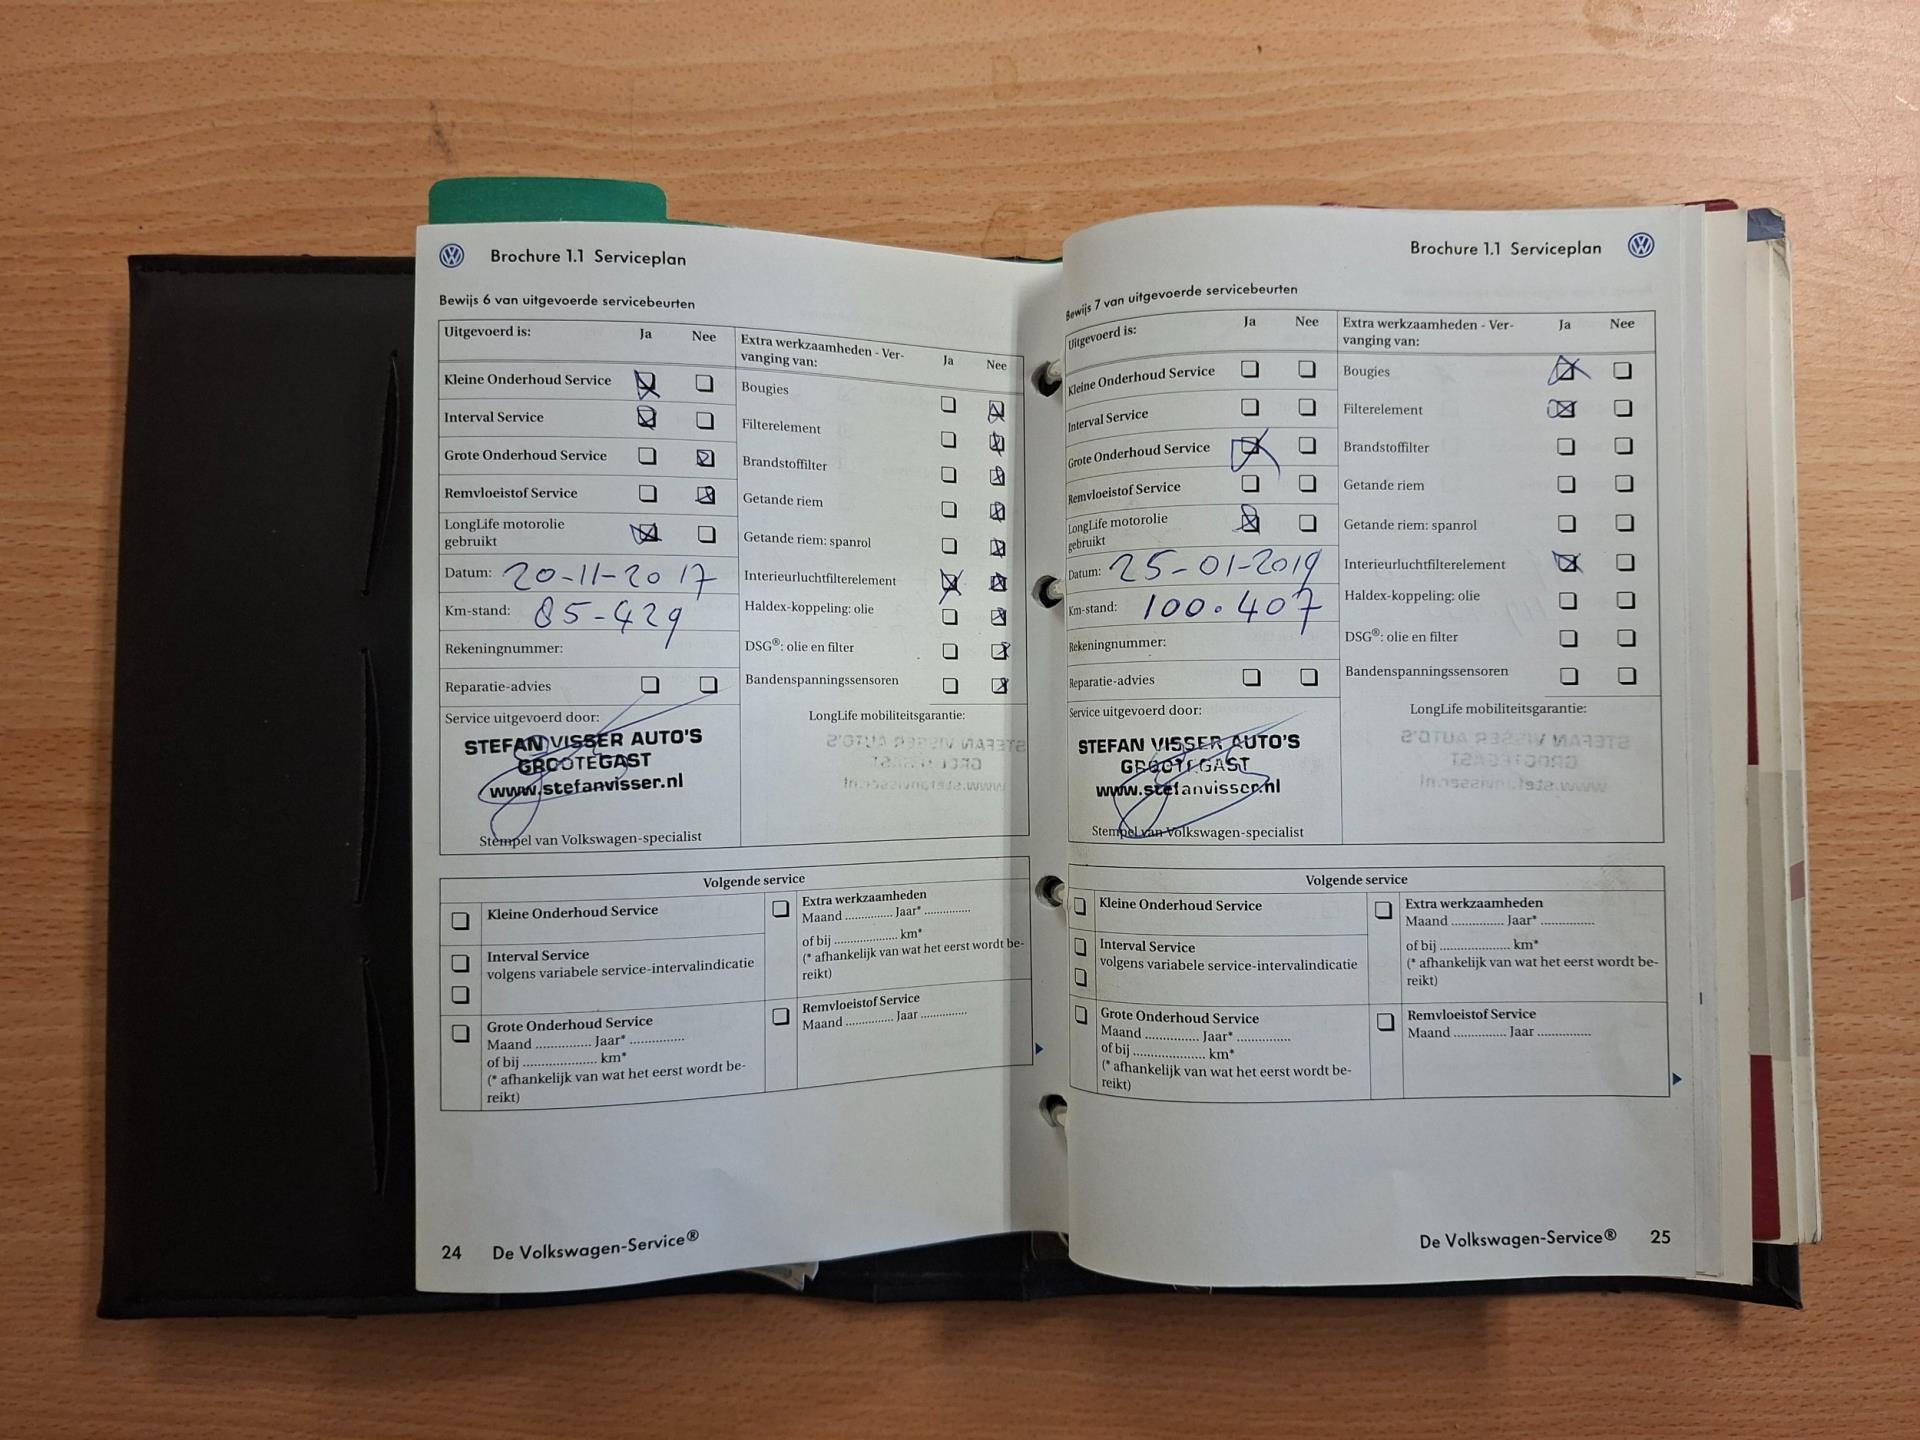 Brochure 1.1 Serviceplan
Bewijs 6 van uitgevoerde servicebeurten
Uitgevoerd is: Ja Nee
Kleine Onderhoud Service
Interval Service
Grote Onderhoud Service
Remvloeistof Service
LongLife motorolie
gebruikt
Datum: 20-11-2017
Km-stand: 85-429
Rekeningnummer:
Reparatie-advies
Service uitgevoerd door:
STEFAN VISSER AUTO'S
GROOTEGAST
www.stefanvisser.nl
Stempel van Volkswagen-specialist
Extra werkzaamheden - Ver-
vanging van: Ja Nee
Bougies
Filterelement
Brandstoffilter
Getande riem
Getande riem: spanrol
Interieurluchtfilterelement
Haldex-koppeling: olie
DSG®: olie en filter
Bandenspanningssensoren
LongLife mobiliteitsgarantie:
Volgende service
Kleine Onderhoud Service
Interval Service
volgens variabele service-intervalindicatie
Grote Onderhoud Service
Maand ............... Jaar* ...............
of bij .................... km*
(* afhankelijk van wat het eerst wordt be-
reikt)
Extra werkzaamheden
Maand ............. Jaar* .............
of bij .................... km*
(* afhankelijk van wat het eerst wordt be-
reikt)
Remvloeistof Service
Maand ............. Jaar .............
24 De Volkswagen-Service®
Brochure 1.1 Serviceplan
Bewijs 7 van uitgevoerde servicebeurten
Uitgevoerd is: Ja Nee
Kleine Onderhoud Service
Interval Service
Grote Onderhoud Service
Remvloeistof Service
LongLife motorolie
gebruikt
Datum: 25-01-2019
Km-stand: 100.407
Rekeningnummer:
Reparatie-advies
Service uitgevoerd door:
STEFAN VISSER AUTO'S
GROOTEGAST
www.stefanvisser.nl
Stempel van Volkswagen-specialist
Extra werkzaamheden - Ver-
vanging van: Ja Nee
Bougies
Filterelement
Brandstoffilter
Getande riem
Getande riem: spanrol
Interieurluchtfilterelement
Haldex-koppeling: olie
DSG®: olie en filter
Bandenspanningssensoren
LongLife mobiliteitsgarantie:
Volgende service
Kleine Onderhoud Service
Interval Service
volgens variabele service-intervalindicatie
Grote Onderhoud Service
Maand ............... Jaar* ...............
of bij .................... km*
(* afhankelijk van wat het eerst wordt be-
reikt)
Extra werkzaamheden
Maand ............... Jaar* ...............
of bij .................... km*
(* afhankelijk van wat het eerst wordt be-
reikt)
Remvloeistof Service
Maand ............... Jaar ...............
De Volkswagen-Service® 25